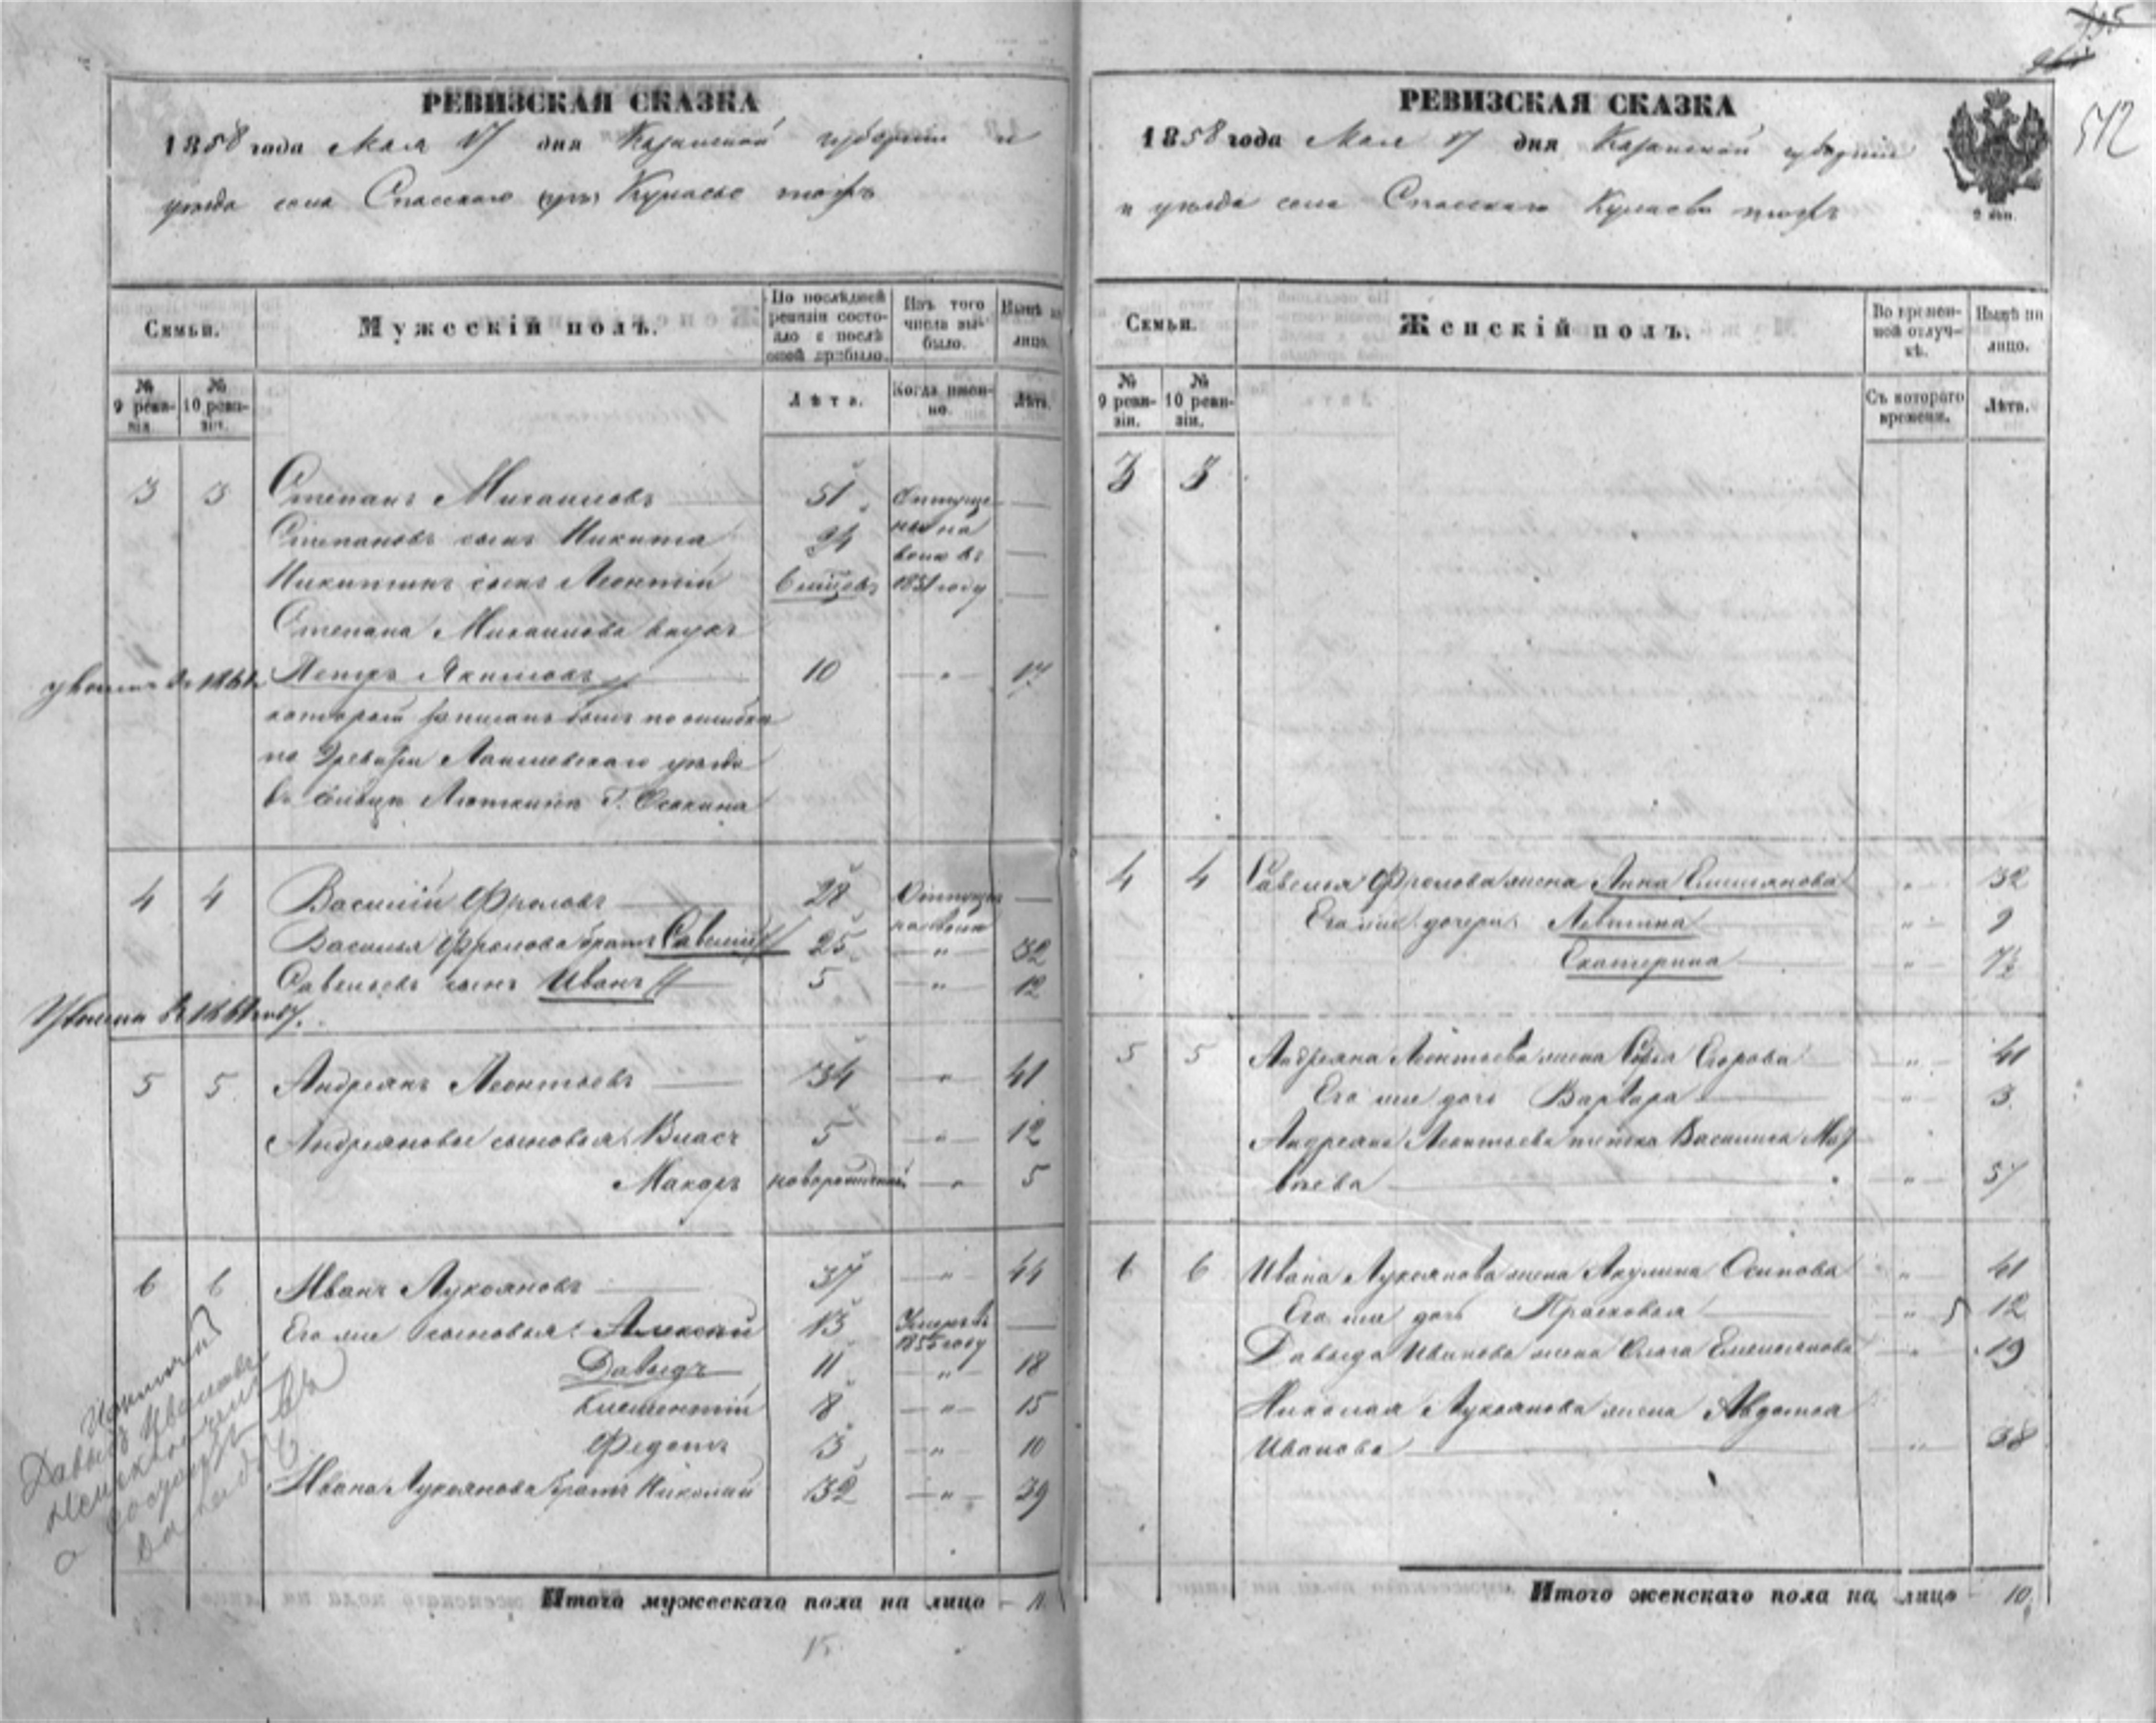 512
РЕВИЗСКАЯ СКАЗКА
1858 года Мая 17 дня Казанской губерніи и
уѣзда села Спасскаго Кулаево тожъ
Семьи.
Мужескій полъ.
По послѣдней ревизіи состояло и послѣ оной прибыло.
Изъ того числа выбыло.
Нынѣ на лицо.
№ 9 ревизіи.
№ 10 ревизіи.
Лѣта.
Когда именно.
Лѣта.
3 3 Степанъ Михаиловъ 51 Отпуще
Степановъ сынъ Никита 24 ны на
волю въ
Никитинъ сынъ Леонтій 6 мѣсцовъ 1851 году
Степана Михаилова внукъ
Петръ Якимовъ 10 — " — 17
который записанъ былъ по ошибкѣ
по 9 ревизіи Лаишевскаго уѣзда
въ Г. Осокина
4 4 Василій Фроловъ 28 Отпущен
на волю
Василья Фролова братъ Савелій 25 — " — 32
Савельевъ сынъ Иванъ 5 — " — 12
5 5 Андреянъ Леонтьевъ 34 " 41
Андреяновы сыновья: Власъ 5 — " — 12
Макаръ новорожденный — " 5
6 6 Иванъ Лукояновъ 37 — " — 44
Его же сыновья: Алексѣй 13 Умеръ въ
1855 году
Давыдъ 11 — " — 18
Климентій 8 — " — 15
Федотъ 3 " 10
Ивана Лукоянова братъ Николай 32 — " — 39
Давыдъ Ивановъ
Итого мужескаго пола на лицо 11
РЕВИЗСКАЯ СКАЗКА
1858 года Мая 17 дня Казанской губерніи
и уѣзда села Спасскаго Кулаево тожъ
Семьи.
Женскій полъ.
Во временной отлучкѣ.
Нынѣ на лицо.
№ 9 ревизіи.
№ 10 ревизіи.
Съ котораго времени.
Лѣта.
3 3
4 4 Савелья Фролова жена Анна Емельянова " 32
Его же дочери: Алевтина — " — 9
Екатерина "
5 5 Андреяна Леонтьева жена Софья Егорова — " — 41
Его же дочь Варвара — " — 3
Андреяна Леонтьева тетка Василиса Мат
вѣева — " — 57
6 6 Ивана Лукоянова жена Акулина Осипова — " — 41
Его же дочь Прасковья — " 12
Давыда Иванова жена Ольга Емельянова — " — 19
Николая Лукоянова жена Авдотья
Иванова — " — 38
Итого женскаго пола на лицо 10